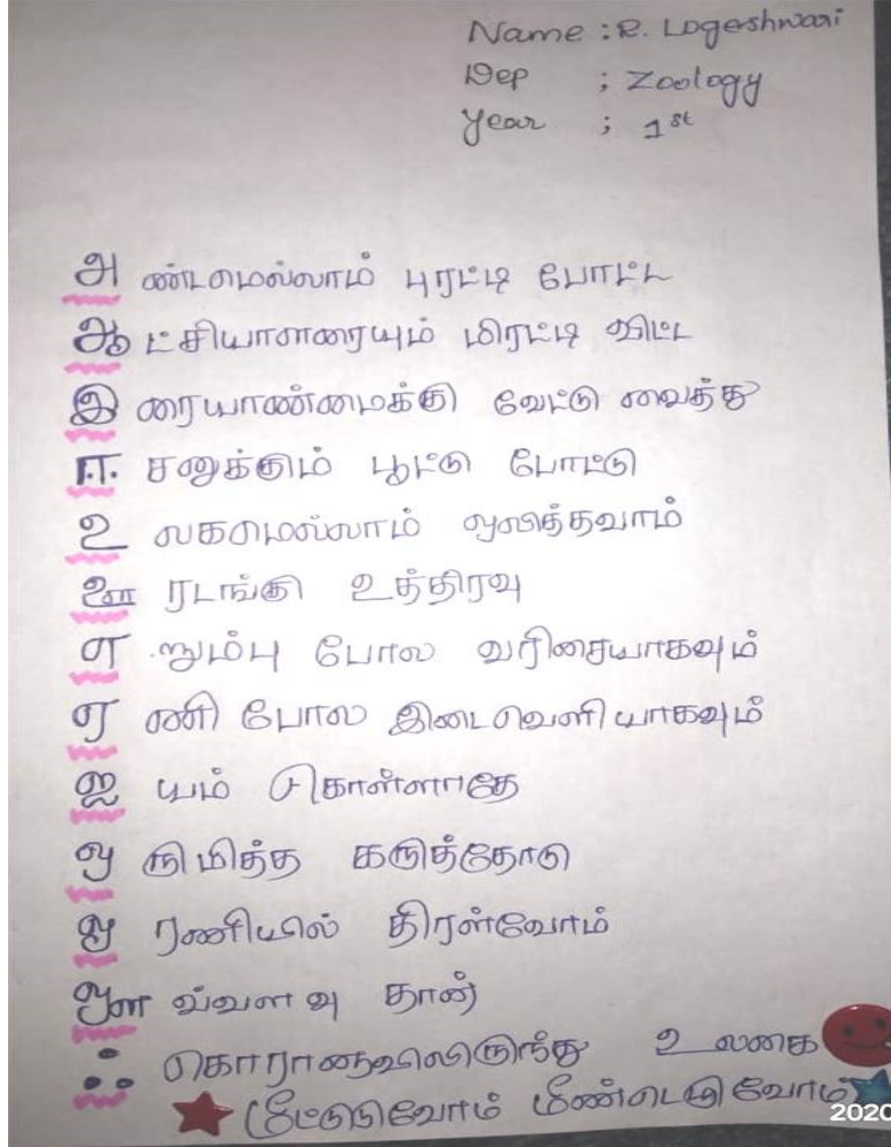 Name : R. Logeshwari
Dep ; Zoology
Year ; 1st
அ ண்டமெல்லாம் புரட்டி போட்ட
ஆ ட்சியாளரையும் மிரட்டி விட்ட
இ ரையாண்மைக்கு வேட்டு வைத்து
ஈ சனுக்கும் பூட்டு போட்டு
உ லகமெல்லாம் ஒலித்தவாம்
ஊ ரடங்கு உத்திரவு
எ றும்பு போல வரிசையாகவும்
ஏ ணி போல இடைவெளியாகவும்
ஐ யம் கொள்ளாதே
ஒ ருமித்த கருத்தோடு
ஓ ரணியில் திரள்வோம்
ஔ வ்வளவு தான்
ஃ கொரானாவிலிருந்து உலகை
மீட்டுடுவோம் மீண்டெழுவோம்
2020